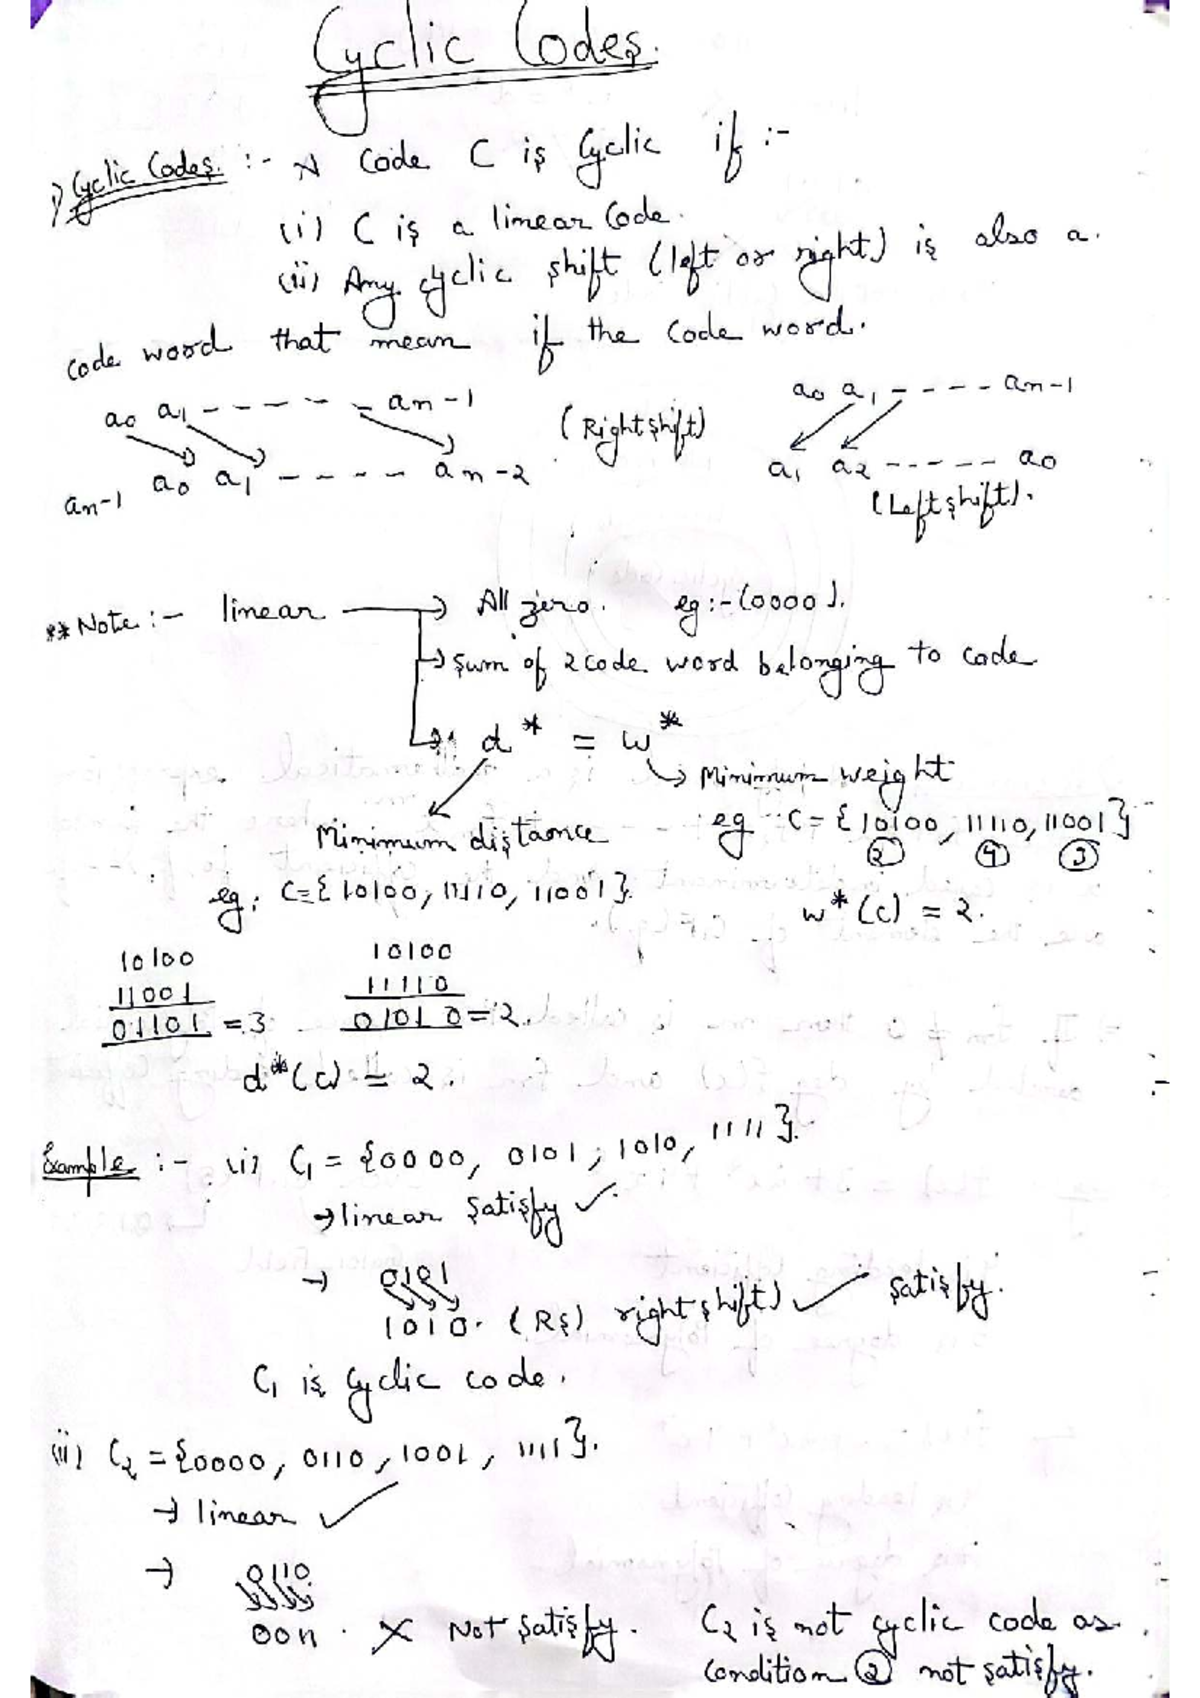 Cyclic Codes.
1) Cyclic Codes. :- A Code C is Cyclic if :-
(i) C is a linear Code.
(ii) Any cyclic shift (left or right) is also a.
code word that mean if the code word.
a0 a1 - - - - - - an-1
an-1 a0 a1 - - - - - an-2
(Right shift)
a0 a1 - - - - an-1
a1 a2 - - - - - a0
(Left shift).
** Note :- linear → All zero. eg :- (0000).
→ Sum of 2 code word belonging to code
→ d* = w*
→ Minimum weight
Minimum distance
eg C = {10100, 11110, 11001}
② ④ ③
w*(c) = 2.
eg: C = {10100, 11110, 11001}.
10100
11001
01101 = 3
10100
11110
01010 = 2.
d*(c) = 2.
Example :- (i) C1 = {0000, 0101, 1010, 1111}.
→ linear Satisfy ✓
→ 0101
1010. (RS) right shift) ✓ Satisfy.
C1 is Cyclic code.
(ii) C2 = {0000, 0110, 1001, 1111}.
→ linear ✓
→ 0110
0011. X Not Satisfy.
C2 is not cyclic code as
condition ② not satisfy.